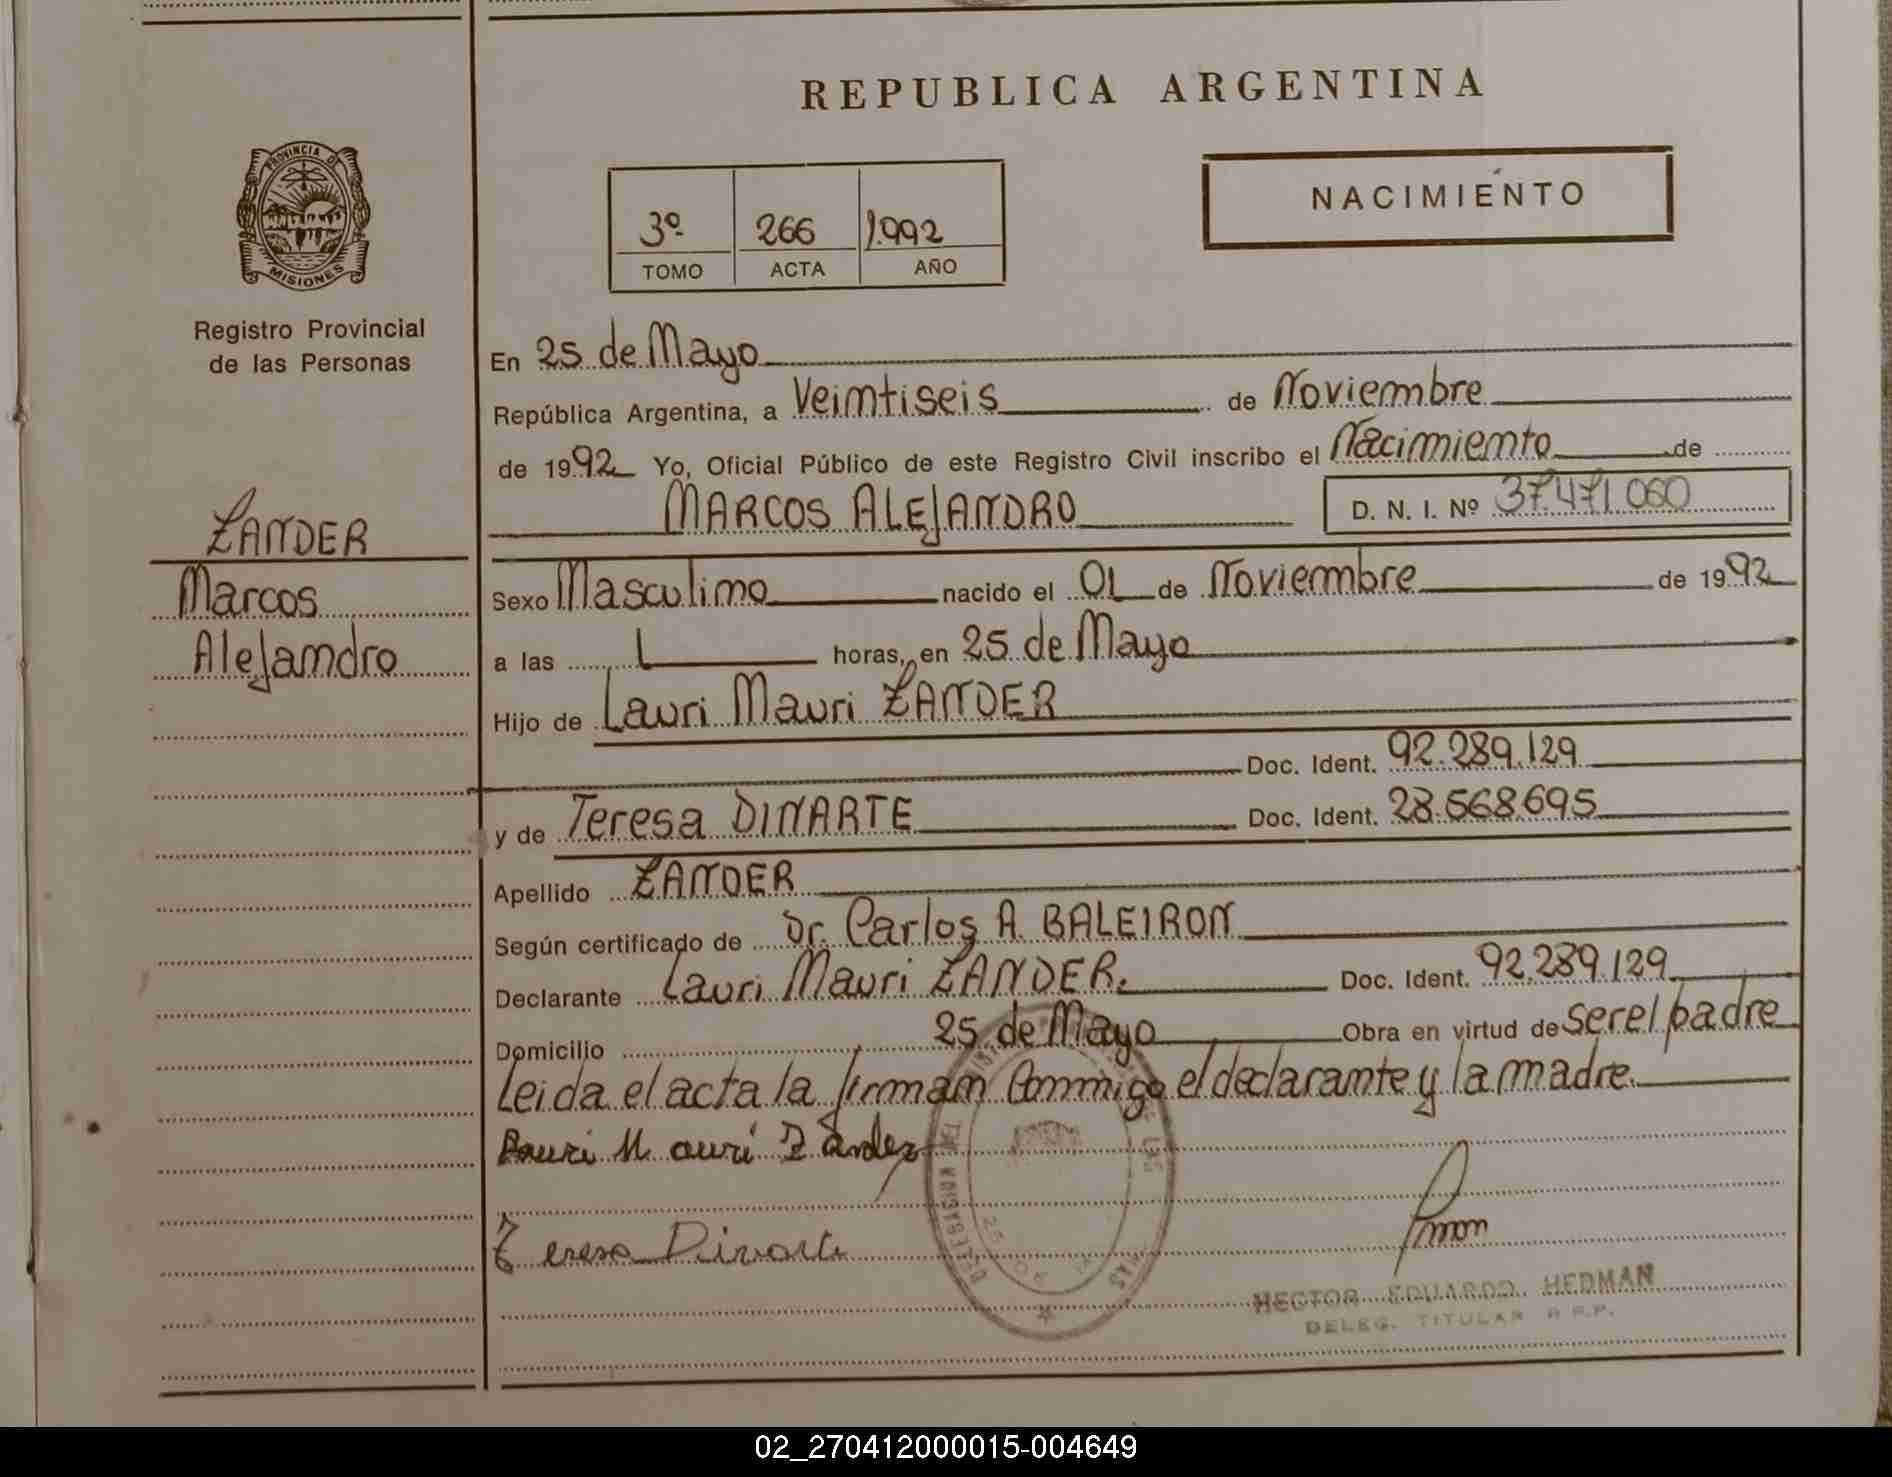 REPUBLICA ARGENTINA
PROVINCIA DE
MISIONES
Registro Provincial
de las Personas
NACIMIENTO
3º 266 1.992
TOMO ACTA AÑO
En 25 de Mayo
República Argentina, a Veintiseis de Noviembre
de 1992 Yo, Oficial Público de este Registro Civil inscribo el Nacimiento de
MARCOS ALEJANDRO D. N. I. Nº 37.471.060
ZANDER
Marcos
Alejandro
Sexo Masculino nacido el 01 de Noviembre de 1992
a las 1 horas, en 25 de Mayo
Hijo de Lauri Mauri ZANDER
Doc. Ident. 92.289.129
y de Teresa DINARTE Doc. Ident. 28.568.695
Apellido ZANDER
Según certificado de Dr. Carlos A. BALEIRON
Declarante Lauri Mauri ZANDER. Doc. Ident. 92.289.129
Domicilio 25 de Mayo Obra en virtud de ser el padre
Leida el acta la firman Conmigo el declarante y la madre.
Lauri Mauri Zander
Teresa Dinarte
HECTOR EDUARDO HEDMAN
DELEG. TITULAR R.P.P.
02_270412000015-004649